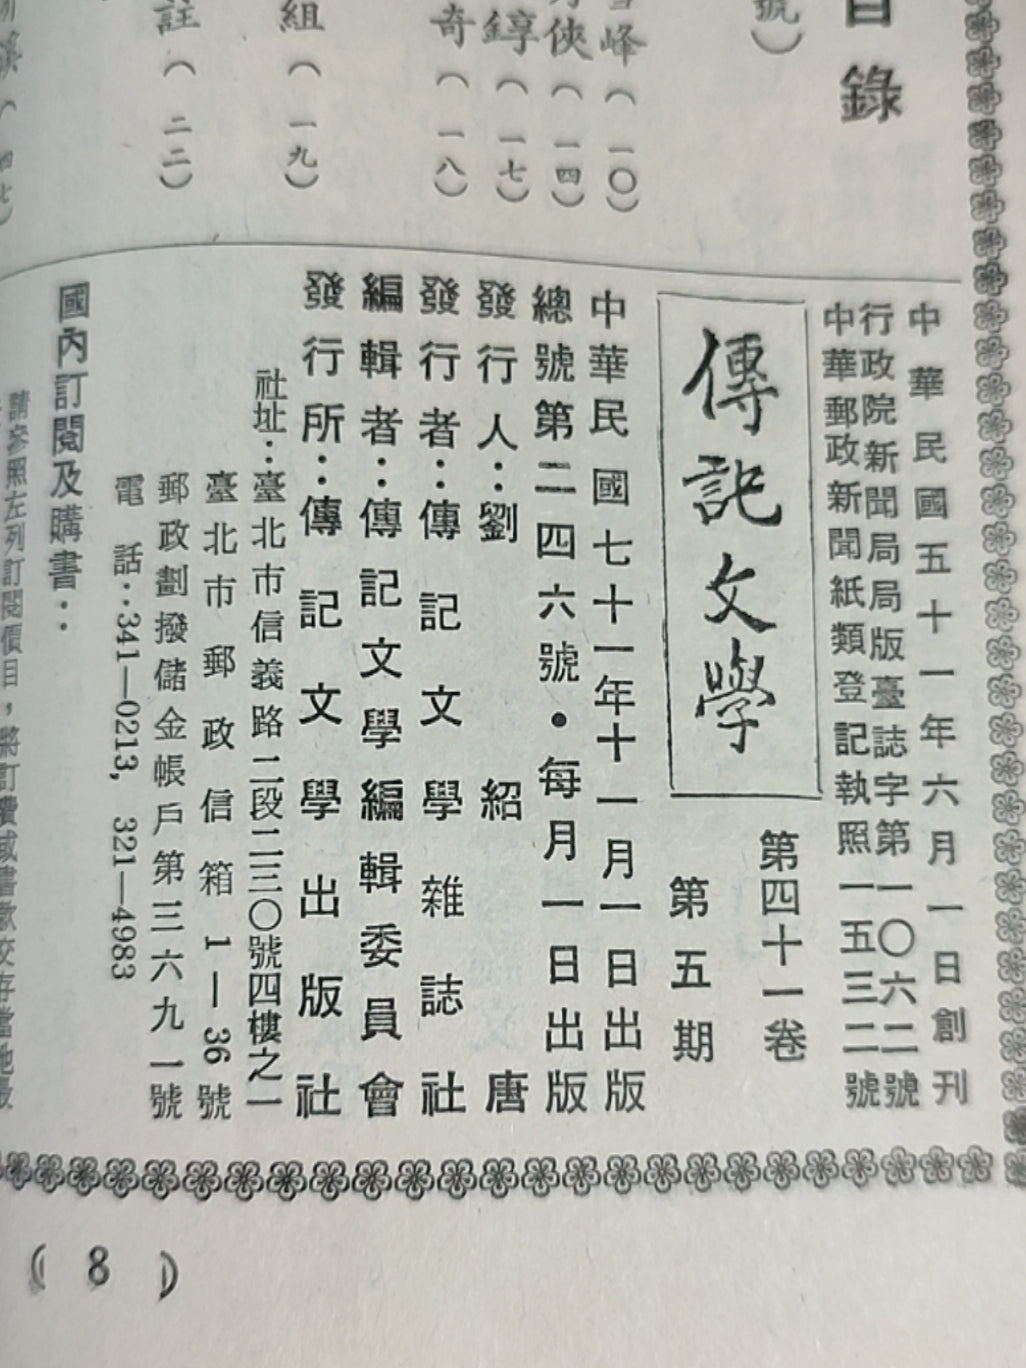 目錄
號）
峰（一〇）
俠（一四）
錞（一七）
奇（一八）
組（一九）
註（二二）
中華民國五十一年六月一日創刊
行政院新聞局局版臺誌字第一〇六二號
中華郵政新聞紙類登記執照一五三二號
傳記文學
第四十一卷
第五期
中華民國七十一年十一月一日出版
總號第二四六號・每月一日出版
發行人：劉紹唐
發行者：傳記文學雜誌社
編輯者：傳記文學編輯委員會
發行所：傳記文學出版社
社址：臺北市信義路二段二三〇號四樓之一
臺北市郵政信箱1—36號
郵政劃撥儲金帳戶第三六九一號
電話：341—0213, 321—4983
國內訂閱及購書：
請參照左列訂閱價目，將訂費或書款交存當地
(8)